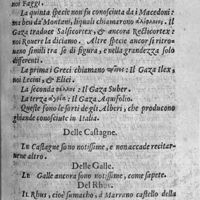 noi Faggi.
La quinta specie non fu conosciuta da i Macedoni:
ma boi da' Montani, liquali chiamarono
Gaza tradusse Salsicortex, & ancora Recticortex:
noi Rouere la diciamo. Altre specie ancor si ritrouano
simili tra se di figura, e nella grandezza solo
differenti.
La prima i Greci chiamano : Il Gaza Ilex,
noi Lecini, & Elici.
La seconda : Il Gaza Suber.
La terza : Il Gaza Aquifolio.
Queste sono le sorti de gli Alberi, che producono
ghiande conosciute in Italia.
Delle Castagne.
Le Castagne sono notissime, e non accade recitarne
altro.
Delle Galle.
Le Galle ancora sono notissime, come sapete.
Del Rhus.
Il Rhus, cioè sumacho, à Marrano castello della